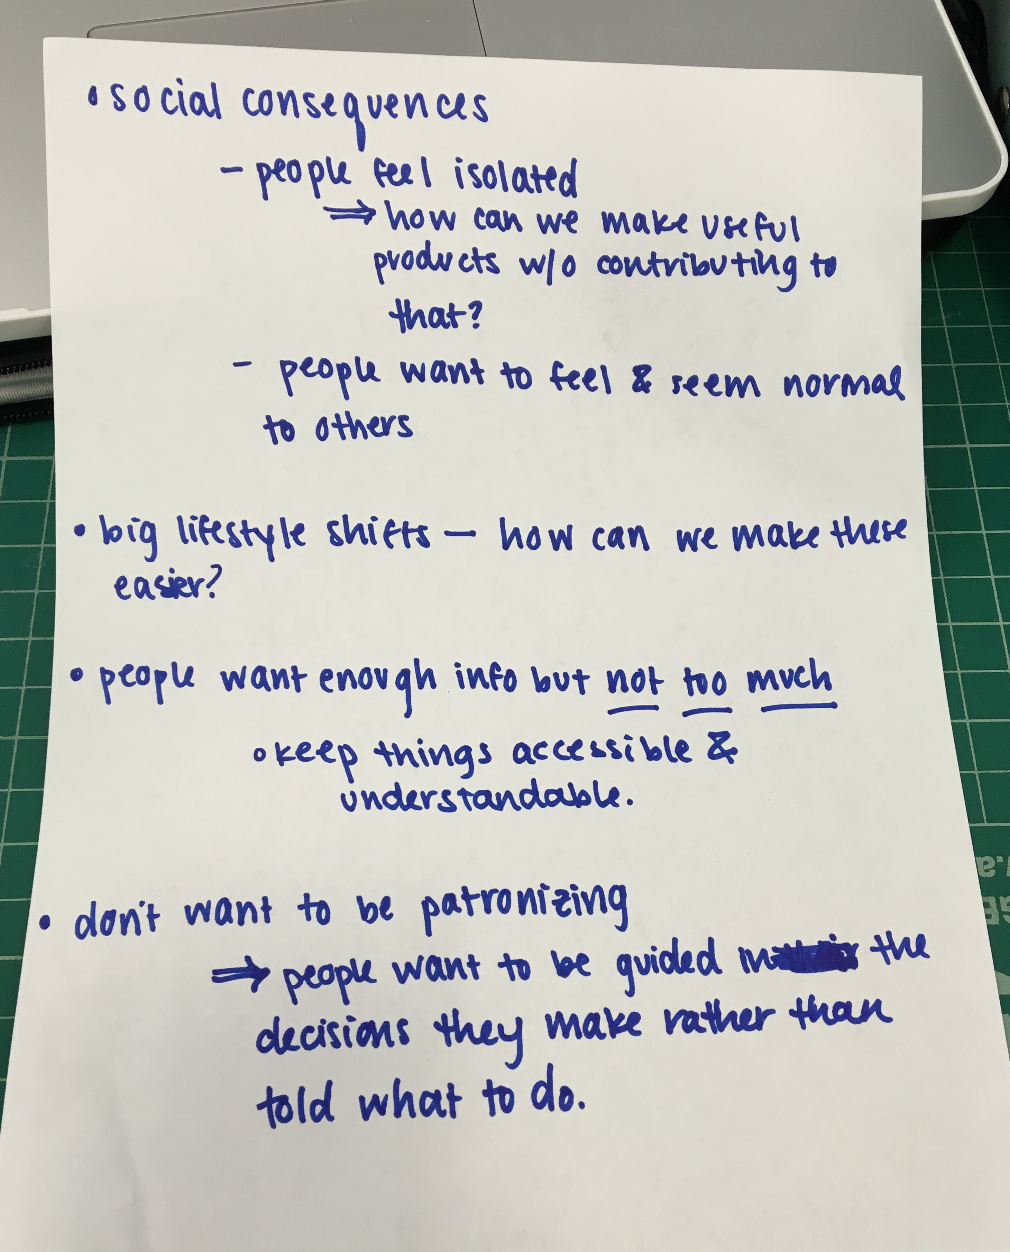 • social consequences
- people feel isolated
⇒ how can we make useful
products w/o contributing to
that?
- people want to feel & seem normal
to others
• big lifestyle shifts — how can we make these
easier?
• people want enough info but not too much
◦ keep things accessible &
understandable.
• don't want to be patronizing
⇒ people want to be guided in the
decisions they make rather than
told what to do.